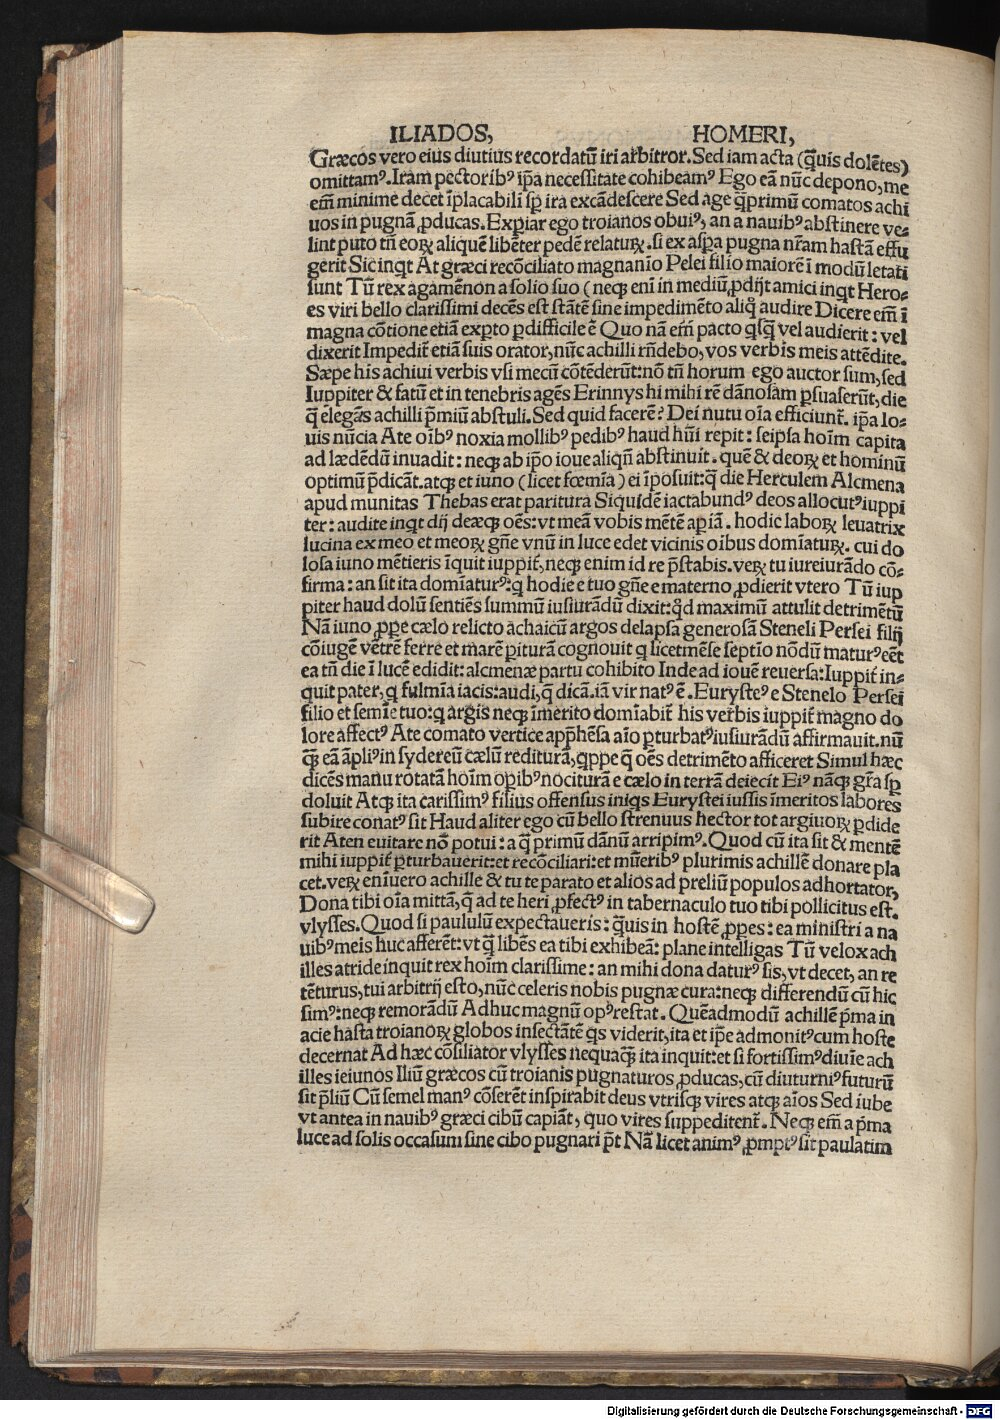 ILIADOS, HOMERI,
Græcos vero eius diutius recordatū iri arbitror. Sed iam acta (q̄uis dolētes)
omittamꝰ. Iram pectoribꝰ ip̄a necessitate cohibeamꝰ Ego eā nūc depono, me
em̄ minime decet īplacabili sp̄ ira excādescere Sed age q̄primū comatos achi
uos in pugnā ꝓducas. Exꝑiar ego troianos obuiꝰ, an a nauibꝰ abstinere ve⸗
lint puto tn̄ eoꝝ aliquē libēter pedē relatuꝝ. si ex asꝑa pugna nr̄am hastā effu
gerit Sic inqt At græci recōciliato magnanīo Pelei filio maiorē ī modū letati
sunt Tū rex agamēnon a solio suo (neqꝫ enī in mediū ꝓdijt amici inqt Hero⸗
es viri bello clarissimi decēs est stātē sine impedimēto aliq̄ audire Dicere em̄ ī
magna cōtione etiā exꝑto ꝑdifficile ē Quo nā em̄ pacto qsq̄ vel audierit : vel
dixerit Impedit̄ etiā suis orator, nūc achilli rn̄debo, vos verbis meis attēdite.
Sæpe his achiui verbis vsi mecū cōtēderūt: nō tn̄ horum ego auctor sum, sed
Iuppiter & fatū et in tenebris agēs Erinnys hi mihi rē dānosam ꝑsuaserūt, die
q̄ elegās achilli p̄miū abstuli. Sed quid facerē? Dei nutu oīa efficiunt̄. ip̄a Io⸗
uis nūcia Ate oībꝰ noxia mollibꝰ pedibꝰ haud hūi repit : seipsa hoīm capita
ad lædēdū inuadit : neqꝫ ab ip̄o ioue aliqn̄ abstinuit. quē & deoꝝ et hominū
optimū p̄dicāt. atqꝫ et iuno (licet fœmīa) ei īposuit: q̄ die Herculem Alcmena
apud munitas Thebas erat paritura Siquidē iactabundꝰ deos allocutꝰ iuppi
ter : audite inqt dij deæqꝫ oēs: vt meā vobis mētē apiā. hodie laboꝝ leuatrix
lucina ex meo et meoꝝ gn̄e vnū in luce edet vicinis oibus domīatuꝝ. cui do
losa iuno mētieris īquit iuppit̄, neqꝫ enim id re p̄stabis. veꝝ tu iureiurādo cō⸗
firma : an sit ita domīaturꝰ: q hodie e tuo gn̄e e materno ꝓdierit vtero Tū iup
piter haud dolū sentiēs summū iusiurādū dixit: qd̄ maximū attulit detrimētū
Nā iuno ꝓpe cælo relicto achaicū argos delapsa generosā Steneli Persei filij
cōiugē vētrē ferre et marē ꝑiturā cognouit q licet mēse septīo nōdū maturꝰ eēt
ea tn̄ die ī lucē edidit: alcmenæ partu cohibito Inde ad iouē reuersa: Iuppit̄ in⸗
quit pater, q fulmīa iacis: audi, q̄ dicā. iā vir natꝰ ē. Eurysteꝰ e Stenelo Persei
filio et semīe tuo: q argis neqꝫ īmerito domīabit̄ his verbis iuppit̄ magno do
lore affectꝰ Ate comato vertice app̄hēsa aīo ꝑturbatꝰ iusiurādū affirmauit. nū
q̄ꝫ eā āpliꝰ in sydereū cælū rediturā, qppe q̄ oēs detrimēto afficeret Simul hæc
dicēs manu rotatā hoīm opibꝰ nociturā e cælo in terrā deiecit Eiꝰ nāqꝫ gr̄a sp̄
doluit Atqꝫ ita carissimꝰ filius offensus iniqs Eurystei iussis īmeritos labores
subire conatꝰ sit Haud aliter ego cū bello strenuus hector tot argiuoꝝ ꝑdide
rit Aten euitare nō potui : a q̄ primū dānū arripimꝰ. Quod cū ita sit & mentē
mihi iuppit̄ ꝑturbauerit: et recōciliari: et mūeribꝰ plurimis achillē donare pla
cet. veꝝ enīuero achille & tu te parato et alios ad preliū populos adhortator,
Dona tibi oīa mittā, q̄ ad te heri ꝓfectꝰ in tabernaculo tuo tibi pollicitus est.
vlysses. Quod si paululū expectaueris : q̄uis in hostē ꝓpes : ea ministri a na
uibꝰ meis huc afferēt: vt q̄ libēs ea tibi exhibeā: plane intelligas Tū velox ach
illes atride inquit rex hoīm clarissime : an mihi dona daturꝰ sis, vt decet, an re
tēturus, tui arbitrij esto, nūc celeris nobis pugnæ cura: neqꝫ differendū cū hic
simꝰ: neqꝫ remorādū Adhuc magnū opꝰ restat. Quēadmodū achillē p̄ma in
acie hasta troianoꝝ globos insectātē qs viderit, ita et ip̄e admonitꝰ cum hoste
decernat Ad hæc cōsiliator vlysses nequaq̄ꝫ ita inquit: et si fortissimꝰ diuīe ach
illes ieiunos Iliū græcos cū troianis pugnaturos ꝓducas, cū diuturniꝰ futurū
sit p̄liū Cū semel manꝰ cōserēt inspirabit deus vtrisqꝫ vires atqꝫ aīos Sed iube
vt antea in nauibꝰ græci cibū capiāt, quo vires suppeditent̄. Neqꝫ em̄ a p̄ma
luce ad solis occasum sine cibo pugnari p̄t Nā licet animꝰ ꝓmptꝰ sit paulatim
Digitalisierung gefördert durch die Deutsche Forschungsgemeinschaft - DFG